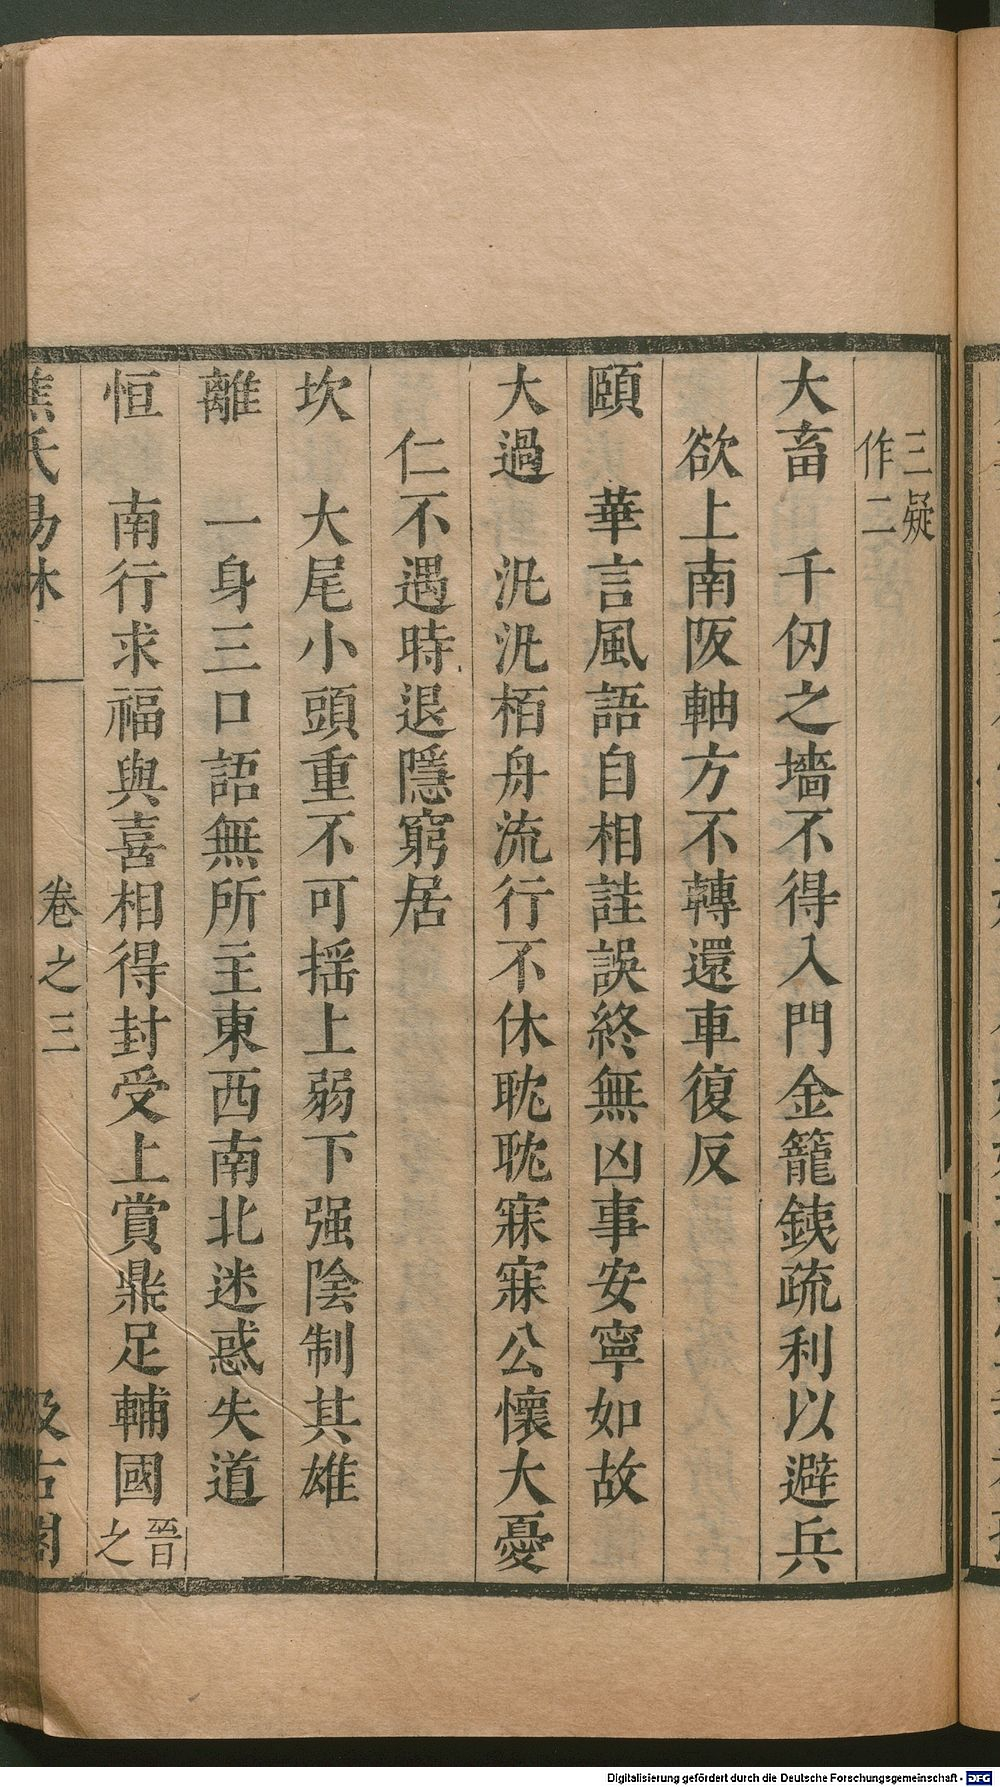 三疑
作二
大畜　千仞之墻不得入門金籠鐵疏利以避兵
欲上南阪軸方不轉還車復反
頤　華言風語自相詿誤終無凶事安寧如故
大過　汎汎栢舟流行不休耽耽寐寐公懷大憂
仁不遇時退隱窮居
坎　大尾小頭重不可揺上弱下强陰制其雄
離　一身三口語無所主東西南北迷惑失道
恒　南行求福與喜相得封受上賞鼎足輔國 晉
之
焦氏易林　卷之三　汲古閣
Digitalisierung gefördert durch die Deutsche Forschungsgemeinschaft - DFG